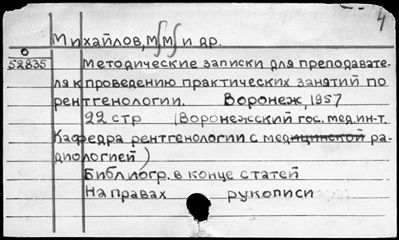 4
Михайлов, М. М. и др.
52835 Методические записки для преподавате-
ля к проведению практических занятий по
рентгенологии. Воронеж, 1957
22 стр (Воронежский гос. мед. ин-т.
Кафедра рентгенологии с медицинской ра-
диологией)
Библиогр. в конце статей
На правах рукописи